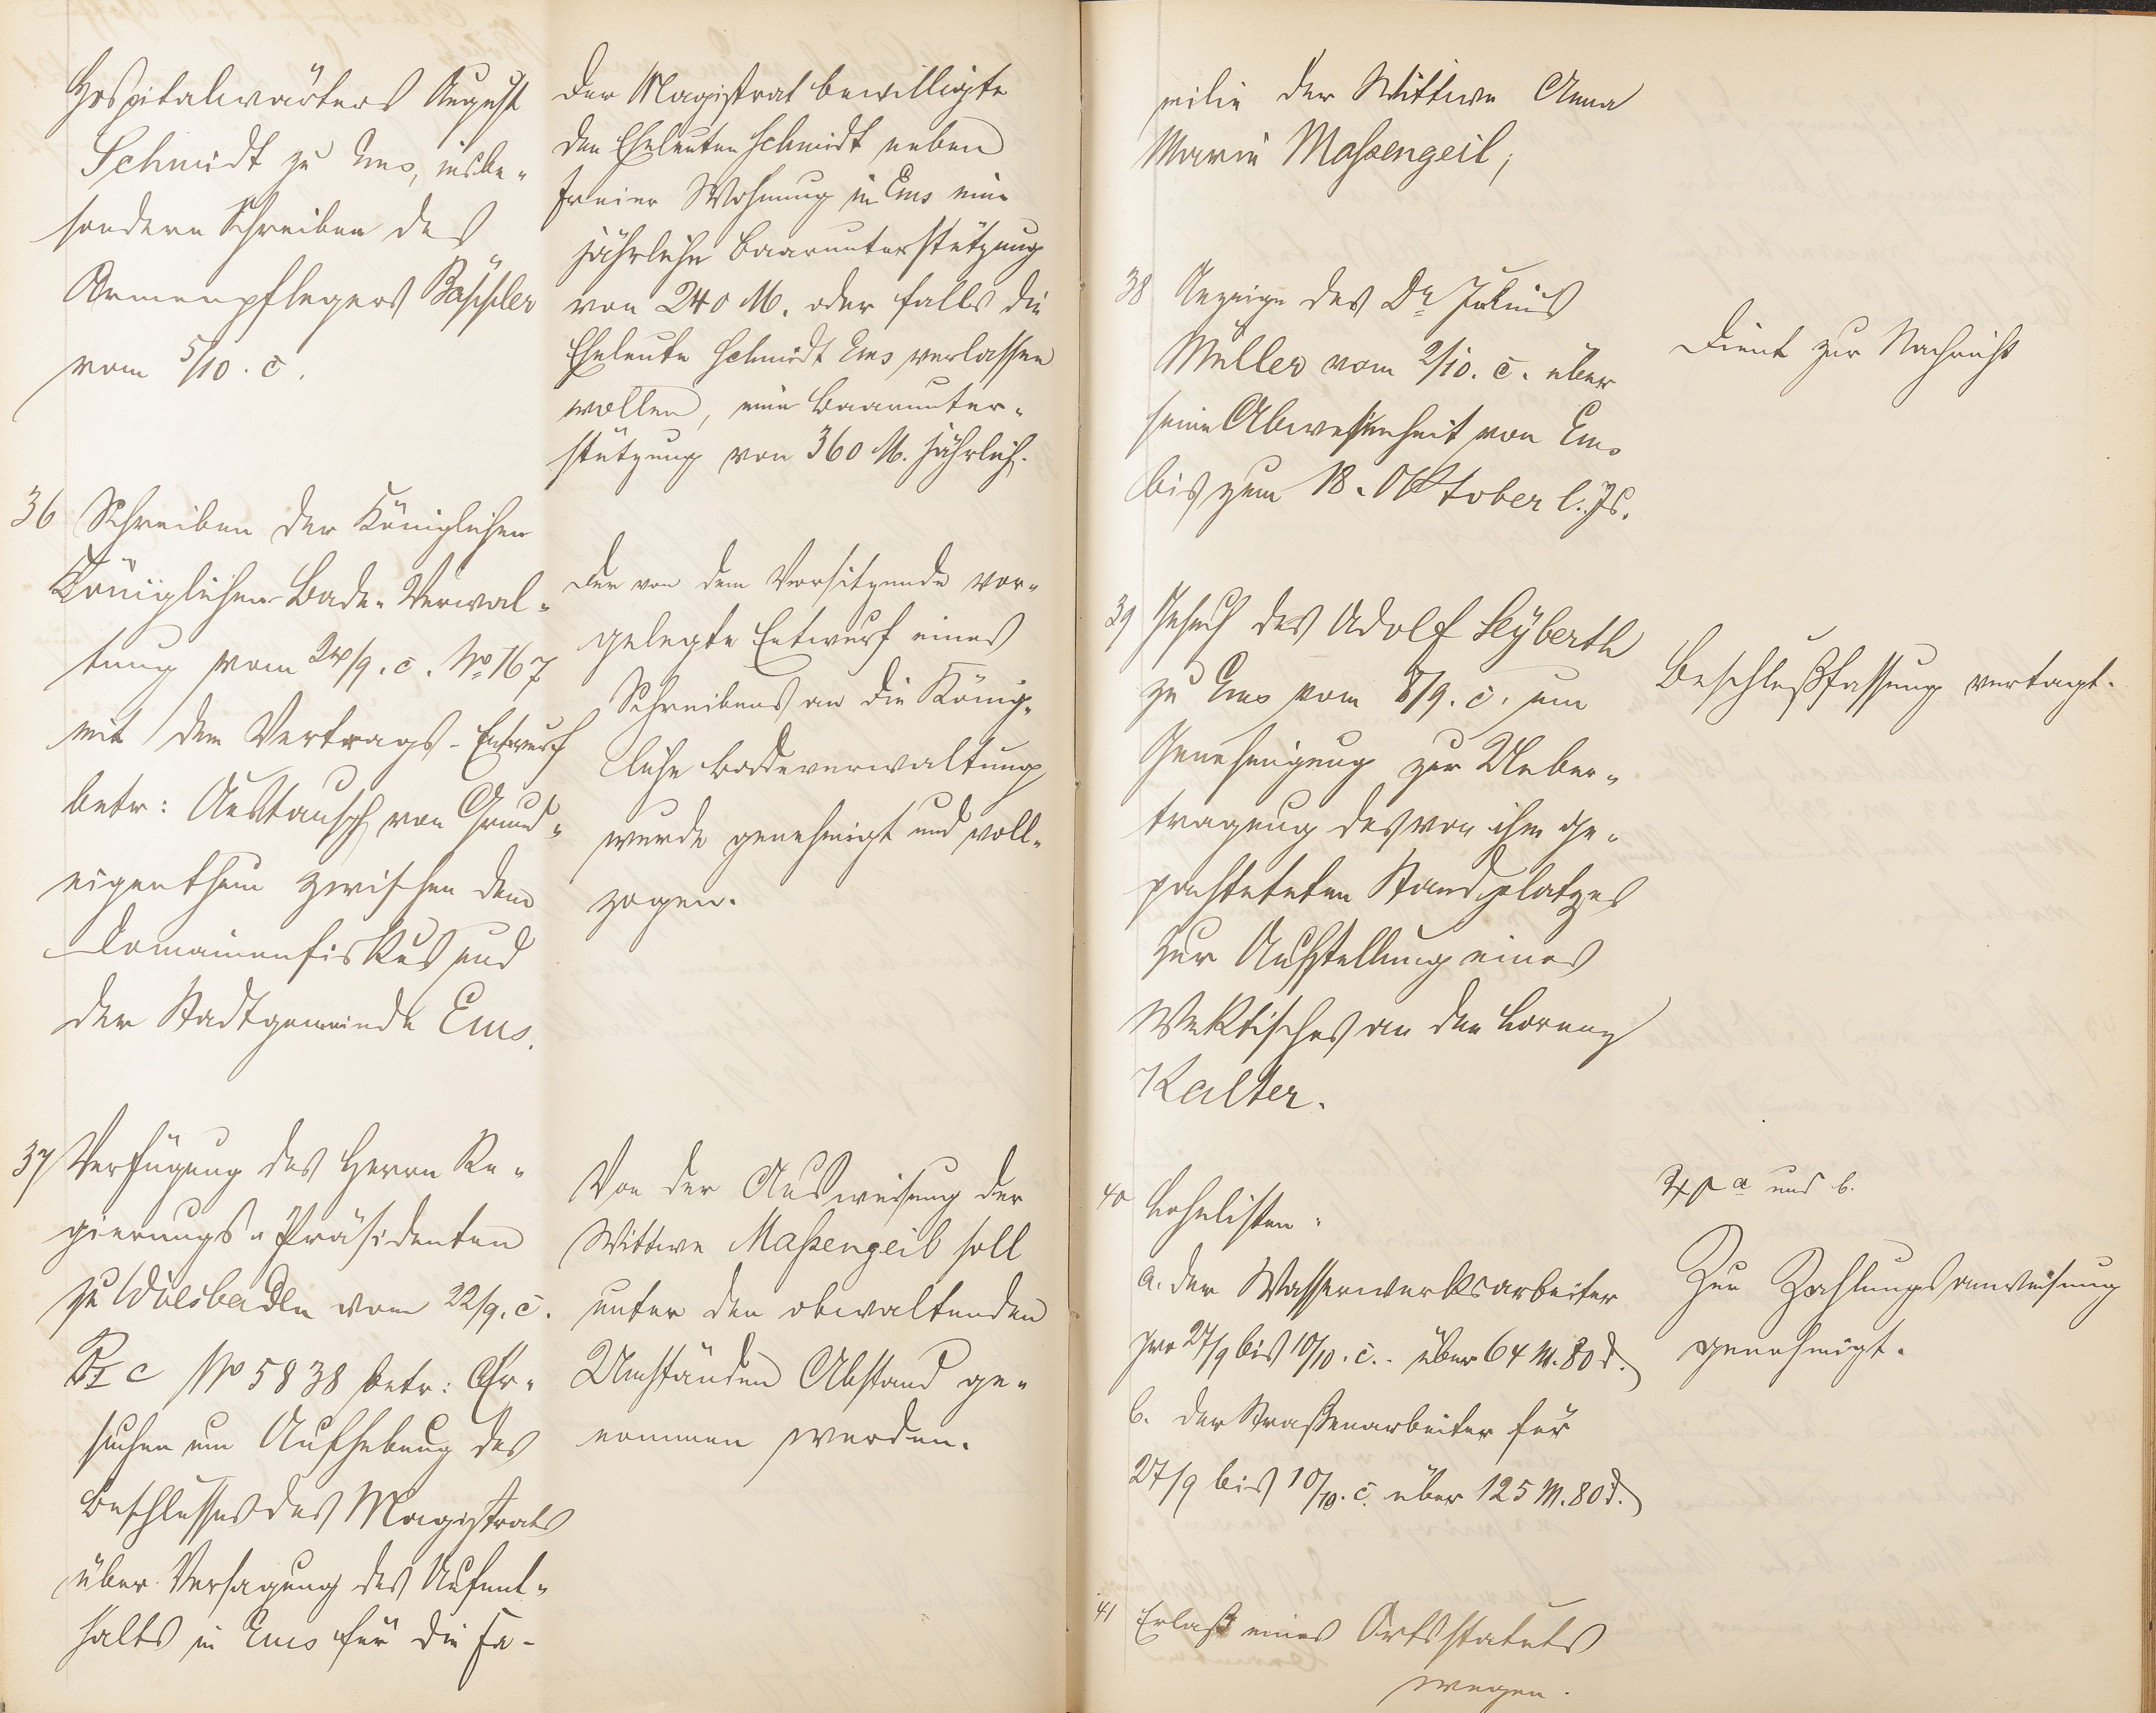 Hospitalwärters August
Schmidt zu Ems, insbe-
sondere Schreiben des
Armenpflegers Bäppler
vom 5/10. c.
Der Magistrat bewilligte
den Eheleuten Schmidt neben
freier Wohnung in Ems eine
jährliche Baarunterstützung
von 240 M. oder falls die
Eheleute Schmidt Ems verlassen
wollen, eine Baarunter-
stützung von 360 M. jährlich.
36 Schreiben der Königlichen
Königlichen Bade-Verwal-
tung vom 24/9. c. No 167
mit dem Vertrags-Entwurf
betr: Austausch von Grund-
eigenthum zwischen dem
Domainenfiskus und
der Stadtgemeinde Ems.
Der von dem Vorsitzende vor-
gelegte Entwurf eines
Schreibens an die König-
liche Badeverwaltung
wurde genehmigt und voll-
zogen.
37 Verfügung des Herrn Re-
gierungs-Präsidenten
zu Wiesbaden vom 22/9. c.
Pr I c No 5838 betr: Er-
suchen um Aufhebung des
Beschlusses des Magistrats
über Versagung des Aufent-
halts in Ems für die Fa-
Von der Ausweisung der
Wittwe Maßengeil soll
unter den obwaltenden
Umständen Abstand ge-
nommen werden.
milie der Wittwe Anna
Maria Maßengeil;
38 Anzeige des Dr Julius
Müller vom 2/10. c. über
seine Abwesenheit von Ems
bis zum 18. Oktober l. Js.
Dient zur Nachricht
39 Gesuch des Adolf Seyberth
zu Ems vom 8/9. c. um
Genehmigung zur Ueber-
tragung des von ihm ge-
pachteten Standplatzes
zur Aufstellung eines
Wecktisches an den Lorenz
Kalter.
Beschlußfassung vertagt.
40 Lohnlisten:
a. der Wasserwerksarbeiter
pro 27/9 bis 10/10. c. über 64 M. 80 d.
b. der Straßenarbeiter für
27/9 bis 10/10. c. über 125 M. 80 d.
a und b.
Zur Zahlungsanweisung
genehmigt.
41 Erlaß eines Ortsstatuts
wegen.